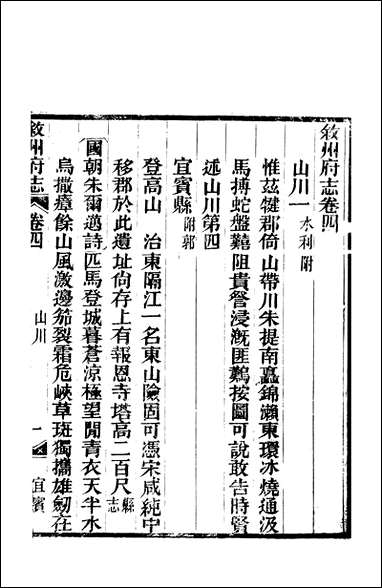 敘州府志卷四
山川一 水利附
惟茲犍郡倚山帶川朱提南矗錦瀨東環冰燒通汲
馬搏蛇盤囏阻貴督浸漑匪鷬按圖可說敢告時賢
述山川第四
宜賓縣 附郭
登高山 治東隔江一名東山險固可憑宋咸純中
移郡於此遺址尙存上有報恩寺塔高二百尺 縣志
國朝朱爾邁詩匹馬登城暮蒼涼極望閒靑衣天半水
烏撒瘴餘山風激邊笳裂霜危峽草斑獨攜雄劒在
敘州府志 卷四 山川 一 宜賓